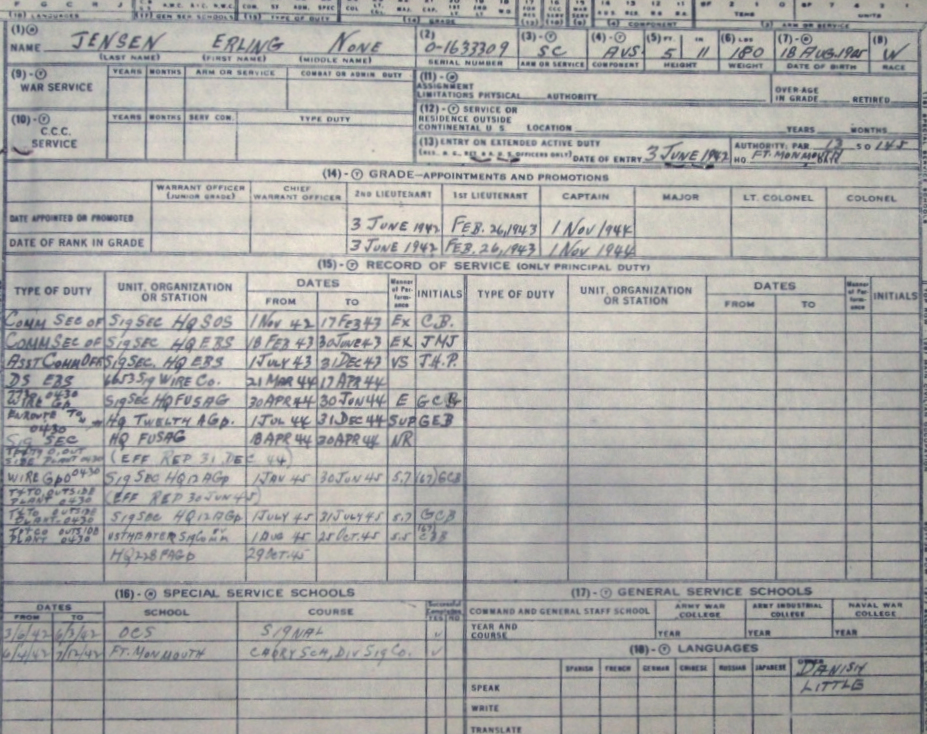 (1) NAME JENSEN ERLING NONE
(LAST NAME) (FIRST NAME) (MIDDLE NAME)
(2) O-1633309 SERIAL NUMBER
(3) SC ARM OR SERVICE
(4) AUS. COMPONENT
(5) FT. IN 5 11 HEIGHT
(6) LBS 180 WEIGHT
(7) DATE OF BIRTH
(8) W RACE
(9) WAR SERVICE YEARS MONTHS ARM OR SERVICE COMBAT OR ADMIN DUTY
(10) C.C.C. SERVICE YEARS MONTHS SERV COM. TYPE DUTY
(11) ASSIGNMENT LIMITATIONS PHYSICAL AUTHORITY OVER-AGE IN GRADE RETIRED
(12) SERVICE OR RESIDENCE OUTSIDE CONTINENTAL U S LOCATION YEARS MONTHS
(13) ENTRY ON EXTENDED ACTIVE DUTY DATE OF ENTRY 3 JUNE 1942 AUTHORITY, PAR 13 SO 145 HQ FT. MONMOUTH
(14) GRADE—APPOINTMENTS AND PROMOTIONS
WARRANT OFFICER (JUNIOR GRADE) CHIEF WARRANT OFFICER 2ND LIEUTENANT 1ST LIEUTENANT CAPTAIN MAJOR LT. COLONEL COLONEL
DATE APPOINTED OR PROMOTED 3 JUNE 1942 FEB. 26, 1943 1 NOV 1944
DATE OF RANK IN GRADE 3 JUNE 1942 FEB. 26, 1943 1 NOV 1944
(15) RECORD OF SERVICE (ONLY PRINCIPAL DUTY)
TYPE OF DUTY UNIT, ORGANIZATION OR STATION DATES FROM TO Manner of Performance INITIALS TYPE OF DUTY UNIT, ORGANIZATION OR STATION DATES FROM TO Manner of Performance INITIALS
COMM SEC OF SIG SEC HQ SOS 1 NOV 42 17 FEB 43 EX C.B.
COMM SEC OF SIG SEC HQ EBS 18 FEB 43 30 JUNE 43 EX JMJ
ASST COMM OFF SIG SEC, HQ EBS 1 JULY 43 31 DEC 43 VS J.H.P.
DS EBS 6653 SIG WIRE CO. 21 MAR 44 17 APR 44
WIRE GP 0430 SIG SEC HQ FUSAG 30 APR 44 30 JUN 44 E GCB
ENROUTE TO 0430 HQ TWELTH AGp. 1 JUL 44 31 DEC 44 SUP GEB
SIG SEC HQ FUSAG 18 APR 44 30 APR 44 NR
(EFF REP 31 DEC 44)
WIRE GPO 0430 SIG SEC HQ 12 AGp 1 JAN 45 30 JUN 45 5.7 (67) GCB
T&TO OUTSIDE PLANT 0430 (EFF REP 30 JUN 45)
T&TO OUTSIDE PLANT 0430 SIG SEC HQ 12 AGp 1 JULY 45 31 JULY 45 5.7 GCB
OUTSIDE PLANT 0430 1 AUG 45 28 OCT. 45 5.5 (67)
29 OCT. 45
(16) SPECIAL SERVICE SCHOOLS
DATES FROM TO SCHOOL COURSE Successful Completion YES NO
3/6/42 6/3/42 OCS SIGNAL ✓
6/4/42 7/12/42 FT. MONMOUTH SCH, DIV SIG CO. ✓
(17) GENERAL SERVICE SCHOOLS
COMMAND AND GENERAL STAFF SCHOOL ARMY WAR COLLEGE ARMY INDUSTRIAL COLLEGE NAVAL WAR COLLEGE
YEAR AND COURSE YEAR YEAR YEAR
(18) LANGUAGES
SPANISH FRENCH GERMAN CHINESE RUSSIAN JAPANESE OTHER DANISH
SPEAK LITTLE
WRITE
TRANSLATE